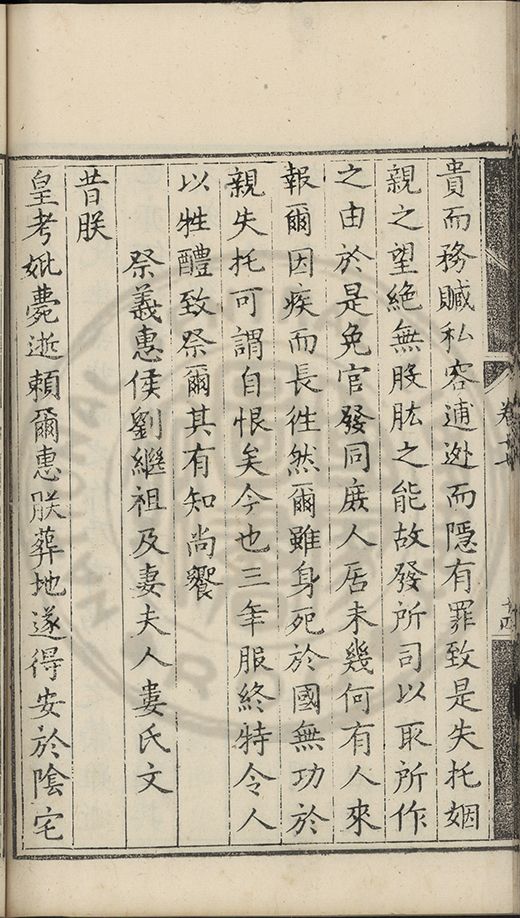 貴而務贓私容逋逃而隱有罪致是失托姻
親之望絕無股肱之能故發所司以取所作
之由於是免官發同庶人居未幾何有人來
報爾因疾而長徃然爾雖身死於國無功於
親失托可謂自恨矣今也三年服終特令人
以牲醴致祭爾其有知尚饗
祭義惠侯劉繼祖及妻夫人婁氏文
昔朕
皇考妣薨逝頼爾惠朕葬地遂得安於陰宅
卷十
十四